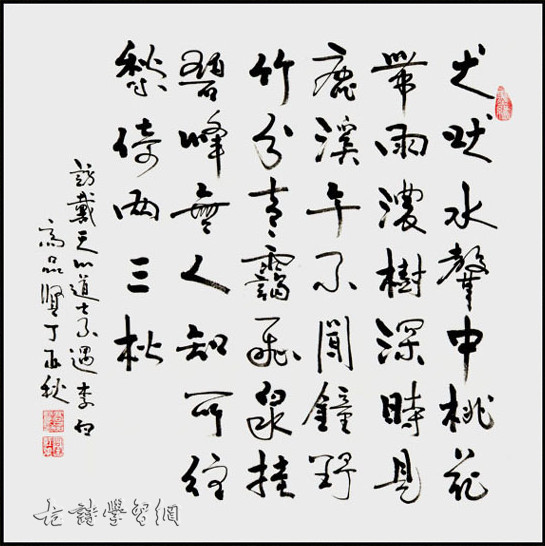 犬吠水聲中桃花
帶雨濃樹深時見
鹿溪午不聞鐘野
竹分青靄飛泉挂
碧峰無人知所往
愁倚兩三松
訪戴天山道士不遇李白
高品賢丁亥秋
詩學習網